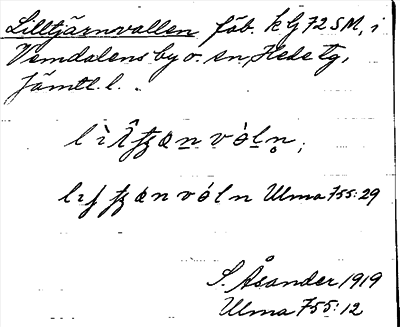 Lilltjärnvallen fäb. kbg 72 SM, i
Vemdalens by o. sn, Hede tg,
Jämtl. l.
Ulma 755:29
S. Åsander 1919
Ulma 755:12